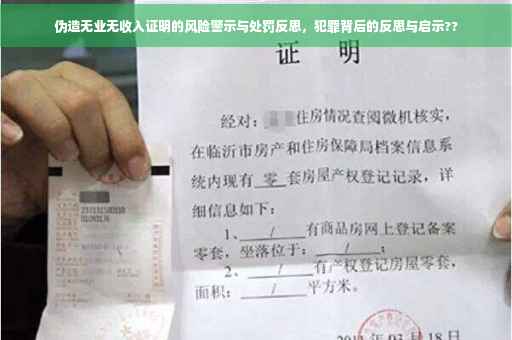 伪造无业无收入证明的风险警示与处罚反思，犯罪背后的反思与启示??
证 明
经对：住房情况查阅微机核实，
在临沂市房产和住房保障局档案信息系
统内现有 零 套房屋产权登记记录，详
细信息如下：
1、 / 有商品房网上登记备案
零套，坐落位于： / ；
2、 / 有产权登记房屋零套，
面积： / 平方米。
月 18 日